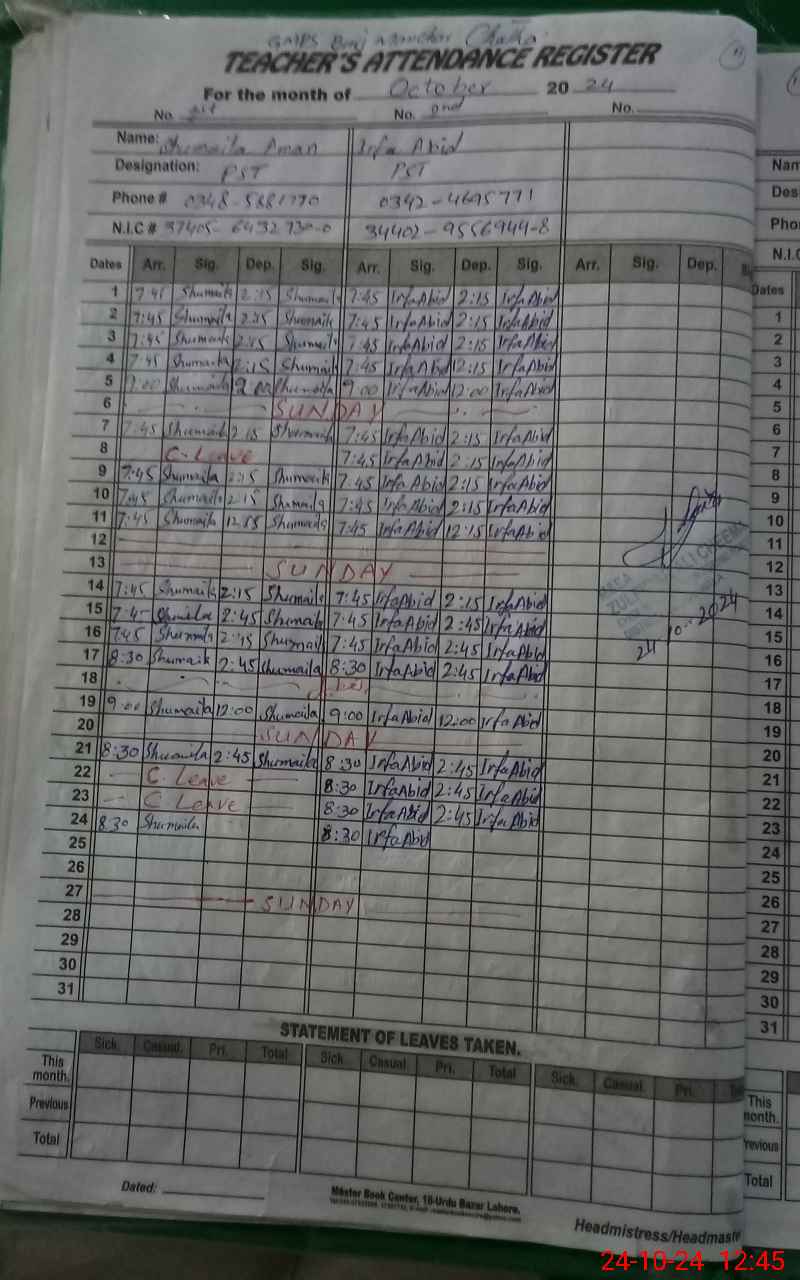 GMPS Chatha
TEACHER'S ATTENDANCE REGISTER
For the month of October 20 24
No. 1st No. 2nd No.
Name: Shumaila Aman Irfa Abid
Designation: PST PST
Phone # 0342-4695771
N.I.C # 34402-9556944-8
Dates Arr. Sig. Dep. Sig. Arr. Sig. Dep. Sig. Arr. Sig. Dep.
1 7:45 Shumaila 2:15 Shumaila 7:45 IrfaAbid 2:15 IrfaAbid
2 7:45 Shumaila 2:15 Shumaila 7:45 IrfaAbid 2:15 IrfaAbid
3 7:45 Shumaila 2:15 Shumaila 7:45 IrfaAbid 2:15 IrfaAbid
4 7:45 Shumaila 12:15 Shumaila 7:45 IrfaAbid 12:15 IrfaAbid
5 Shumaila Shumaila 9:00 IrfaAbid 12:00 IrfaAbid
6 SUNDAY
7 7:45 Shumaila 2:15 Shumaila 7:45 IrfaAbid 2:15 IrfaAbid
8 C. Leave 7:45 IrfaAbid 2:15 IrfaAbid
9 7:45 Shumaila 2:15 Shumaila 7:45 IrfaAbid 2:15 IrfaAbid
10 7:45 Shumaila 2:15 Shumaila 7:45 IrfaAbid 2:15 IrfaAbid
11 7:45 Shumaila 12:15 Shumaila 7:45 IrfaAbid 12:15 IrfaAbid
12
13 SUNDAY
14 7:45 Shumaila 2:15 Shumaila 7:45 IrfaAbid 2:15 IrfaAbid
15 7:45 Shumaila 2:45 Shumaila 7:45 IrfaAbid 2:45 IrfaAbid
16 7:45 Shumaila 2:45 Shumaila 7:45 IrfaAbid 2:45 IrfaAbid
17 8:30 Shumaila 2:45 Shumaila 8:30 IrfaAbid 2:45 IrfaAbid
18
19 9:00 Shumaila 12:00 Shumaila 9:00 IrfaAbid 12:00 IrfaAbid
20 SUNDAY
21 8:30 Shumaila 2:45 Shumaila 8:30 IrfaAbid 2:45 IrfaAbid
22 C. Leave 8:30 IrfaAbid 2:45 IrfaAbid
23 C Leave 8:30 IrfaAbid 2:45 IrfaAbid
24 8:30 Shumaila 8:30 IrfaAbid
25
26
27 SUNDAY
28
29
30
31
24-10-2024
STATEMENT OF LEAVES TAKEN.
Sick. Casual. Pri. Total Sick. Casual. Pri. Total Sick. Casual. Pri.
This month.
Previous
Total
Dated:
Master Book Center, 18-Urdu Bazar Lahore.
Headmistress/Headmaste
Nam
Des
Pho
N.I.C
Dates
1
2
3
4
5
6
7
8
9
10
11
12
13
14
15
16
17
18
19
20
21
22
23
24
25
26
27
28
29
30
31
This month.
Previous
Total
24-10-24 12:45